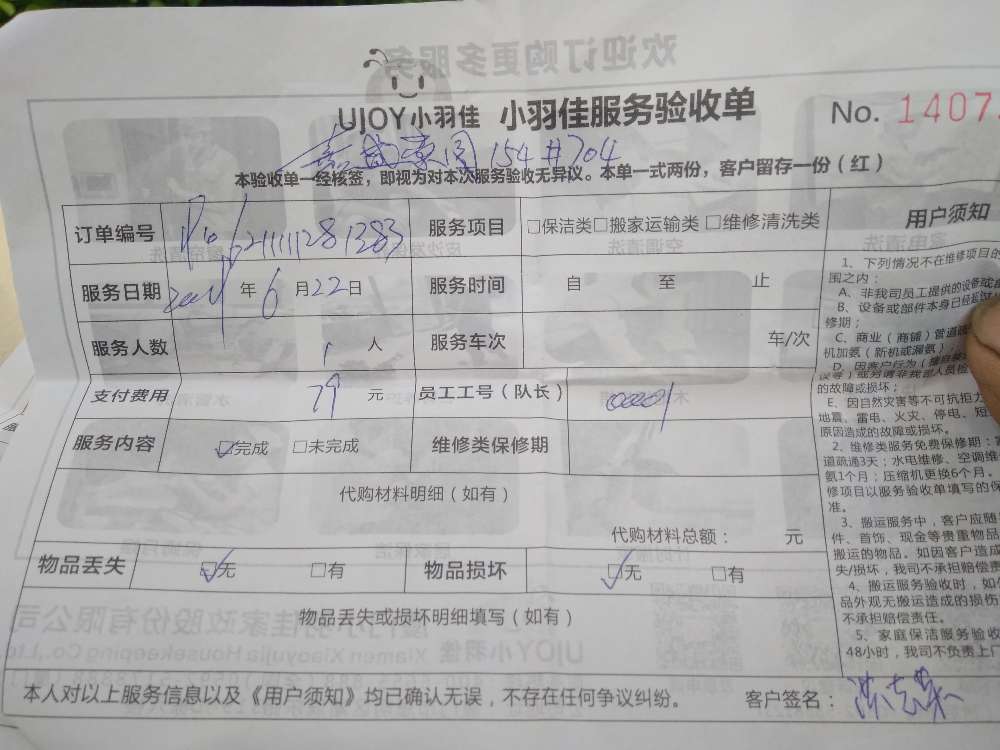 UJOY小羽佳 小羽佳服务验收单 No. 1407
154#704
本验收单一经核签，即视为对本次服务验收无异议。本单一式两份，客户留存一份（红）
订单编号
服务项目 □保洁类□搬家运输类 □维修清洗类
服务日期 年 6 月 22 日 服务时间 自 至 止
服务人数 1 人 服务车次 车/次
支付费用 79 元 员工工号（队长） 00001
服务内容 ☑完成 □未完成 维修类保修期
代购材料明细（如有）
代购材料总额： 元
物品丢失 ☑无 □有 物品损坏 ☑无 □有
物品丢失或损坏明细填写（如有）
本人对以上服务信息以及《用户须知》均已确认无误，不存在任何争议纠纷。 客户签名：
用户须知
1、下列情况不在维修项目的
围之内：
A、非我司员工提供的设备或
B、设备或部件本身已经超过
修期；
C、商业（商铺）管道
机加氨（新机或漏氨）
D、因客户行为（
的故障或损坏；
E、因自然灾害等不可抗拒力
地震、雷电、火灾、停电、短
原因造成的故障或损坏。
2、维修类服务免费保修期：
道疏通3天；水电维修、空调维
氨1个月；压缩机更换6个月。
修项目以服务验收单填写的保
准。
3、搬运服务中，客户应随
件、首饰、现金等贵重物品
搬运的物品。如因客户造成
失/损坏，我司不承担赔偿责
4、搬运服务验收时，如
品外观无搬运造成的损伤
不承担赔偿责任。
5、家庭保洁服务验收
48小时，我司不负责上门